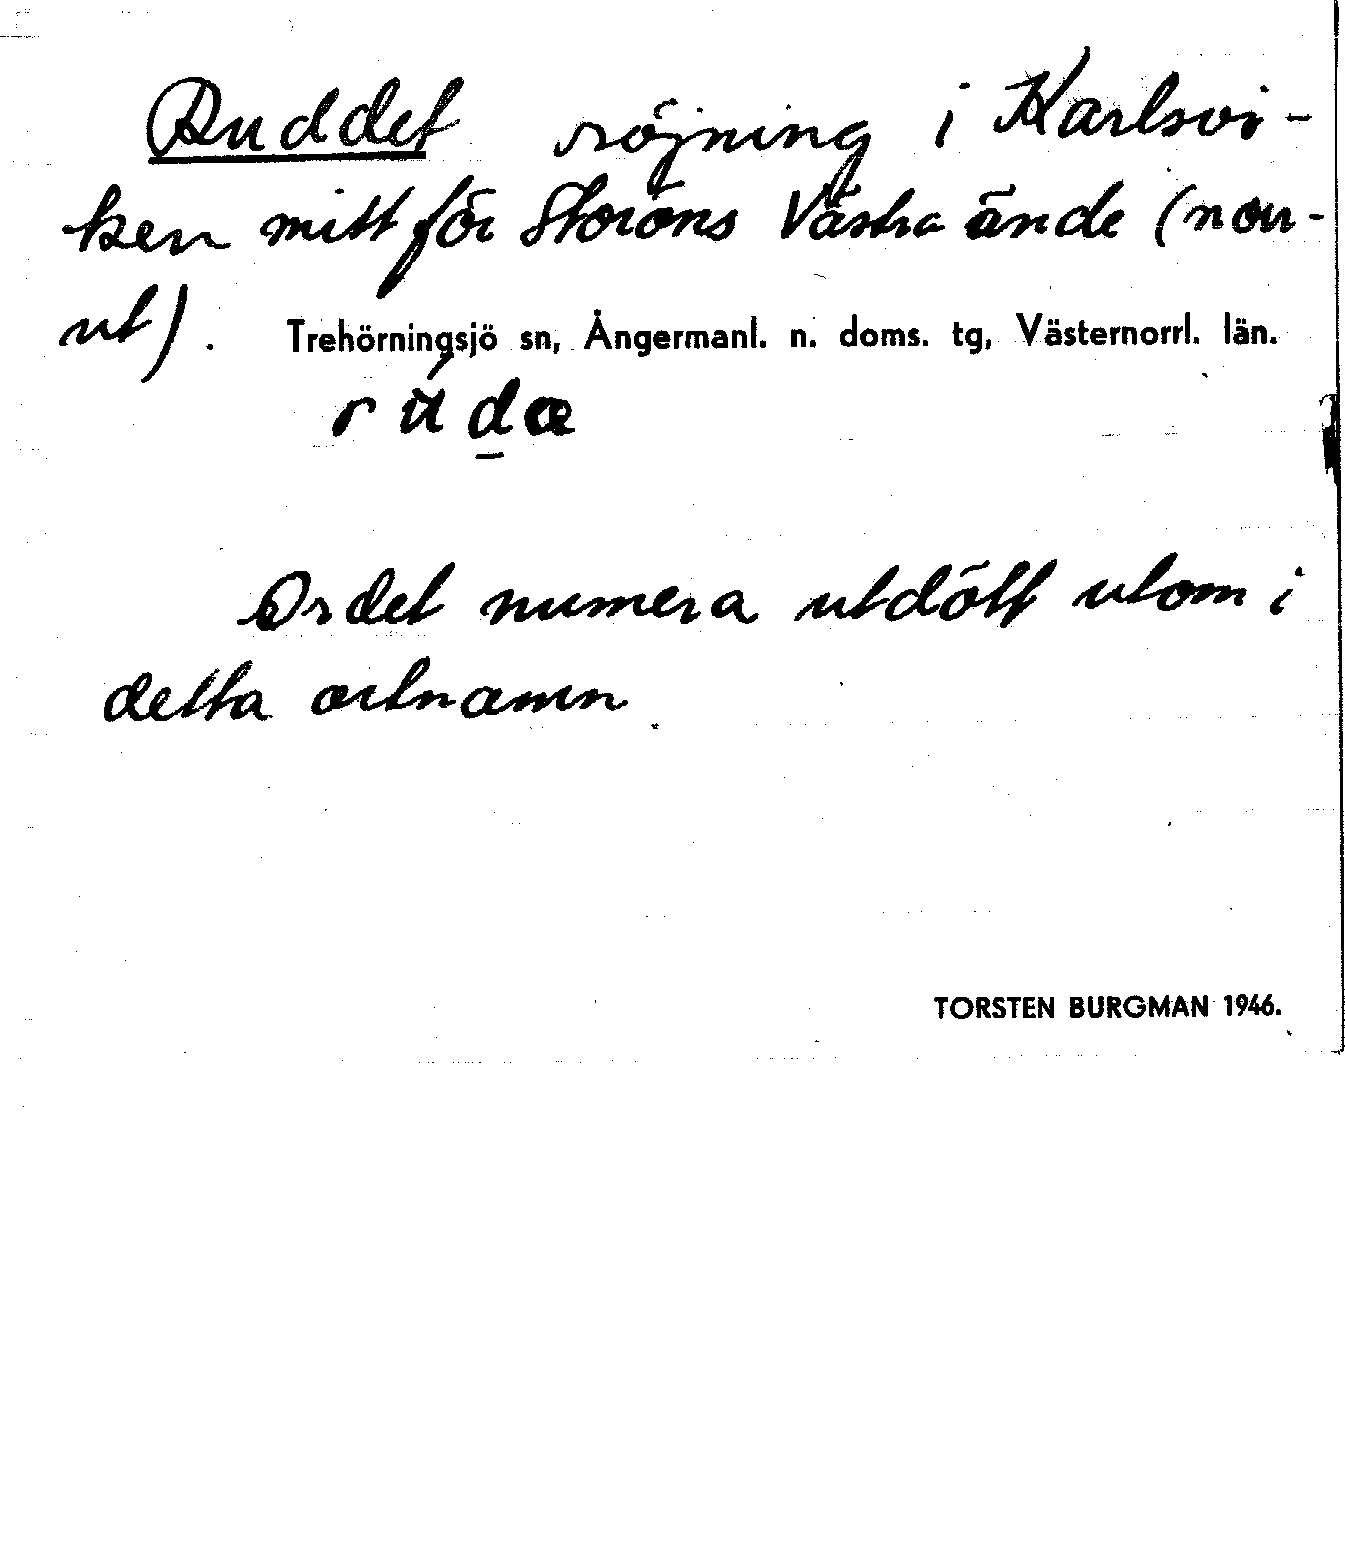 Ruddet röjning i Karlsvi-
ken mitt för Storöns Västra ände (norr-
ut). Trehörningsjö sn, Ångermanl. n. doms. tg, Västernorrl. län.
Ordet numera utdött utom i
detta ortnamn.
TORSTEN BURGMAN 1946.